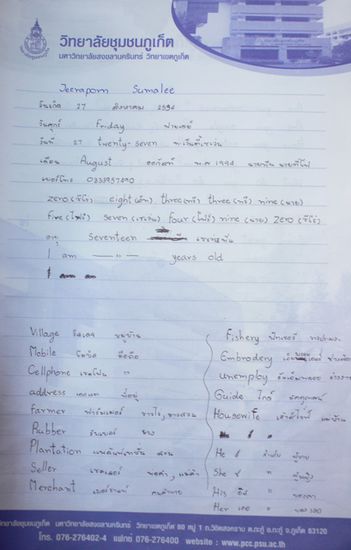 วิทยาลัยชุมชนภูเก็ต
มหาวิทยาลัยสงขลานครินทร์ วิทยาเขตภูเก็ต
Jeeraporn Sumalee
วันเกิด 27 สิงหาคม 2534
วันศุกร์ Friday ฟรายเดย์
วันที่ 27 twenty-seven
เดือน August ออกัสท์ พ.ศ 1994
เบอร์โทร
zero (ซีโร่) eight (เอ็ท) three (ทรี) three (ทรี) nine (นาย)
Five (ไฟว์) seven (เซเว่น) four (โฟร์) nine (นาย) zero (ซีโร่)
อายุ seventeen เซเว่นทีน
I am —"— years old
I am
Village วิลเลจ หมู่บ้าน
Mobile โมบิล มือถือ
Cellphone เซลโฟน "
address แอดเดรส ที่อยู่
Farmer ฟาร์มเมอร์ ชาวไร่, ชาวสวน
Rubber รับเบอร์ ยาง
Plantation แพลนเทชั่น สวน
Seller เซลเลอร์ พ่อค้า, แม่ค้า
Merchant เมอร์ชานท์ คนค้าขาย
Fishery ฟิชเชอรี่ การประมง
Embrodery
unemploy
Guide ไกด์ มัคคุเทศก์
Housewife เฮ้าส์ไวฟ์ แม่บ้าน
He ฮี ผู้ชาย
She ชี ผู้หญิง
His ฮีส ของเขา
Her เฮอ ของเธอ
วิทยาลัยชุมชนภูเก็ต มหาวิทยาลัยสงขลานครินทร์ วิทยาเขตภูเก็ต 80 หมู่ 1 ถ.วิชิตสงคราม ต.กะทู้ อ.กะทู้ จ.ภูเก็ต 83120
โทร. 076-276402-4 แฟกซ์ 076-276400 website : www.pcc.psu.ac.th